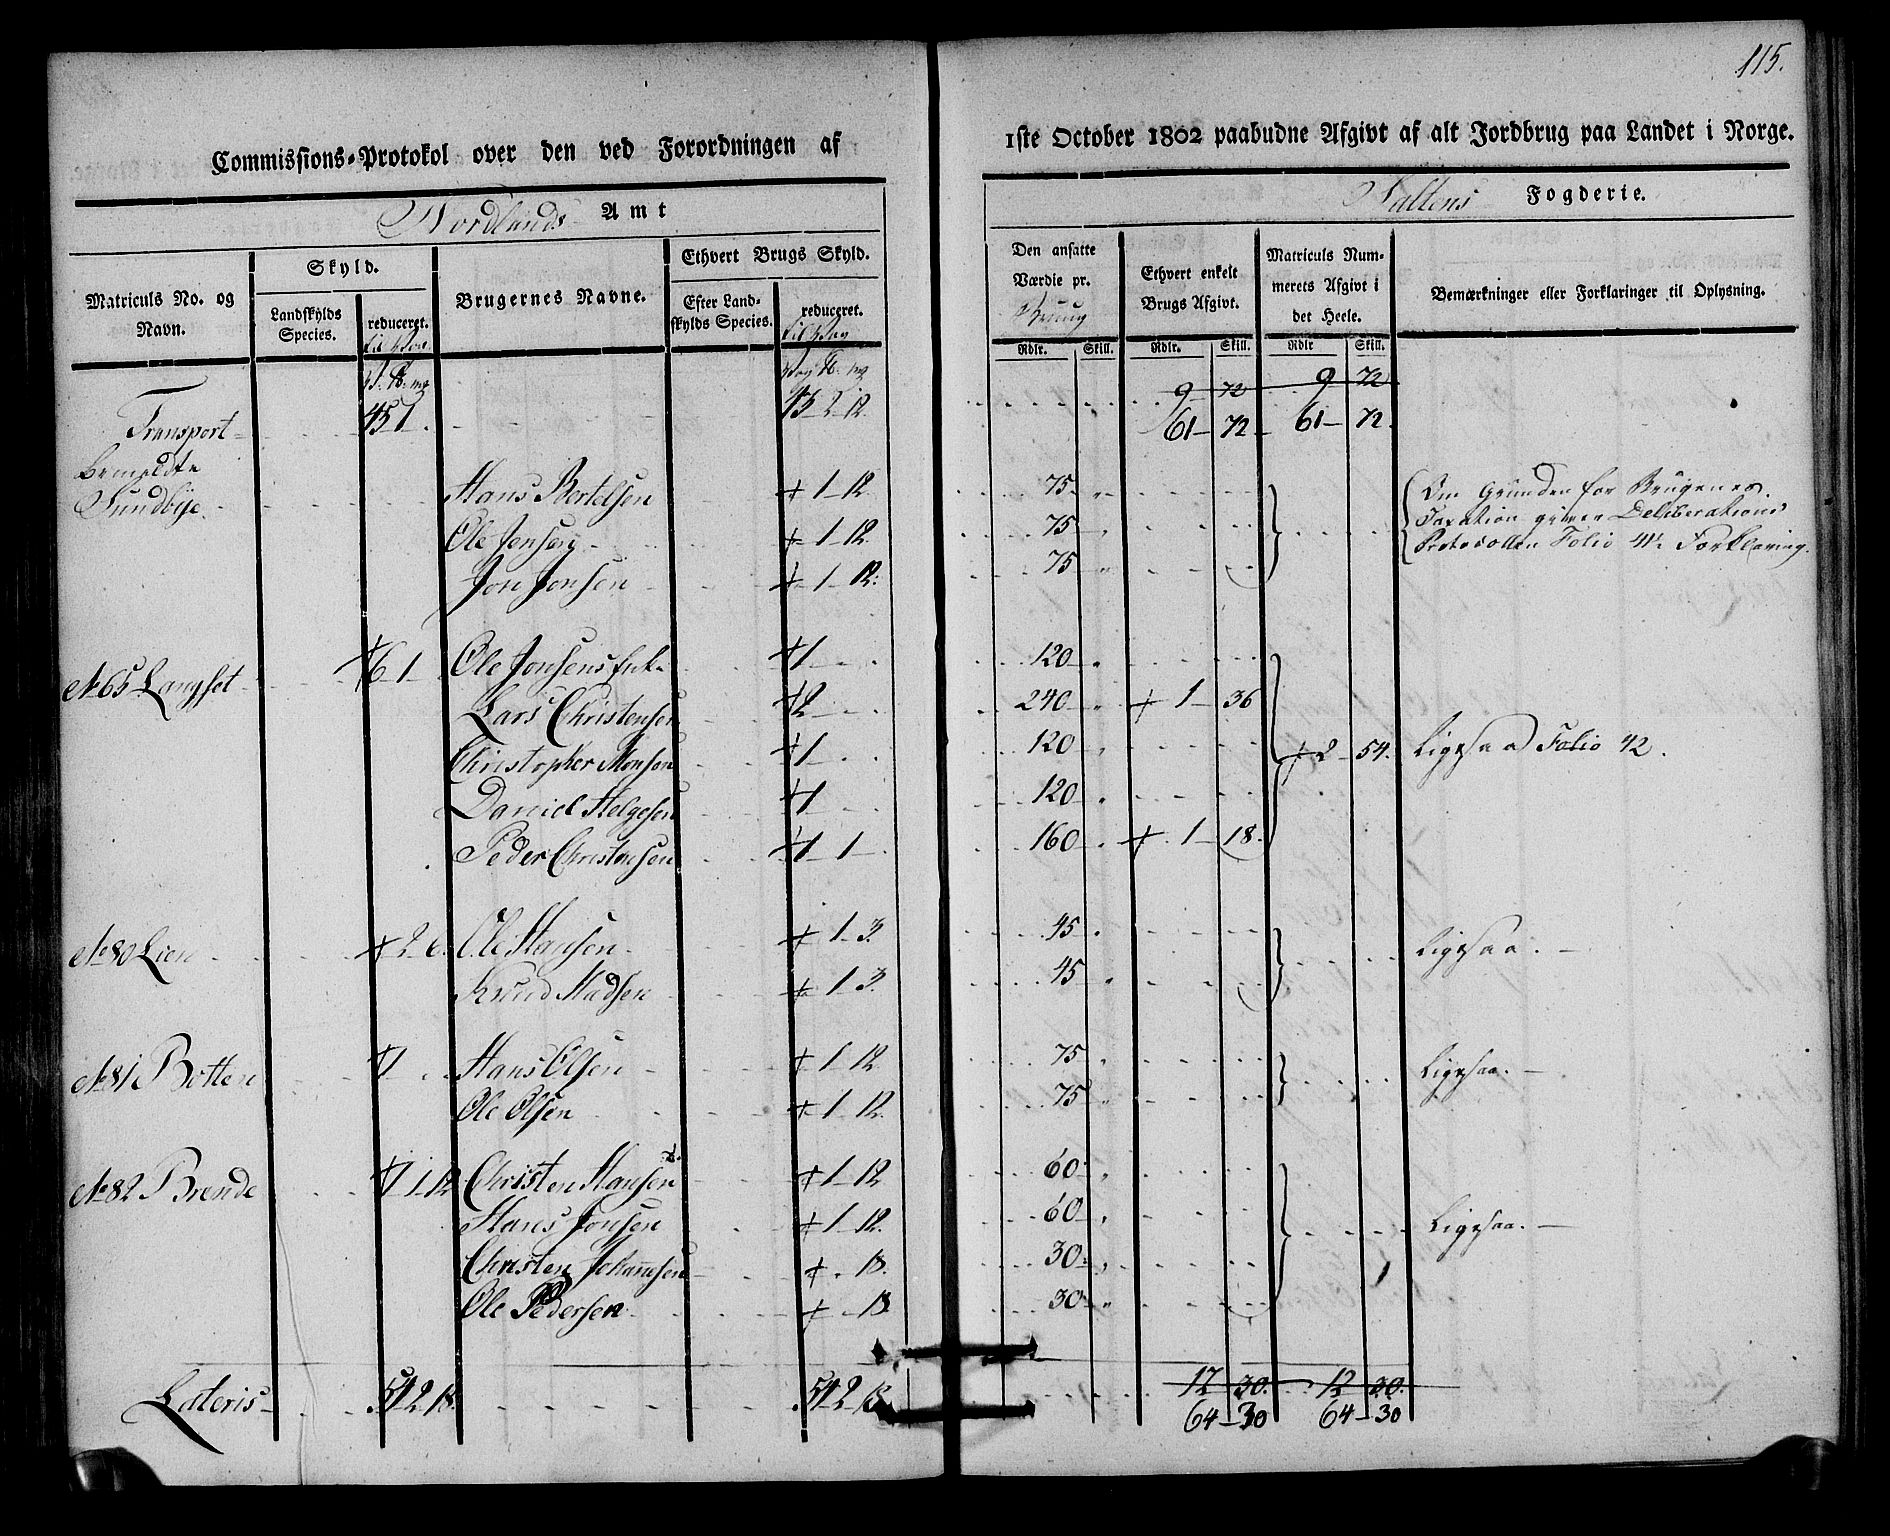 115.
Commissions-Protokol over den ved Forordningen af 1ste October 1802 paabudne Afgivt af alt Jordbrug paa Landet i Norge.
Nordlands Amt Saltens Fogderie.
Matriculs No. og Navn.
Skyld.
Landskylds Species.
reduceret.
Brugernes Navne.
Ethvert Brugs Skyld.
Efter Landskylds Species.
reduceret.
Den ansatte Værdie pr.
Ethvert enkelt Brugs Afgivt.
Matriculs Nummerets Afgivt i det Heele.
Bemærkninger eller Forklaringer til Oplysning.
Rdlr. Skill. Rdlr. Skill. Rdlr Skill.
9 72 9 72
Transport 45 1 45 2 12 61 72 61 72
bemeldte
Sundbye Hans Bertelsen + 1 12 75 Om Grunden for Brugenes
Ole Jensen + 1 12 75 Taxation giver Deliberations
Jon Jonsen + 1 12 75 Protocollen Folio 41 Forklaring.
No 65 Langset +6 1 Ole Jonsens Enke +1 120
Lars Christensen +2 240 + 1 36
Christopher Monsen +1 120 + 2 54 Ligesaa Folio 42.
Daniel Helgesen +1 120
Peder Christensen +1 1 160 + 1 18
No 80 Lien + 2 6 Ole Hansen + 1 3 45 Ligesaa.
Knud Madsen + 1 3 45
No 81 Botten +1 Hans Olsen + 1 12 75 Ligesaa.
Ole Olsen + 1 12 75
No 82 Brende +1 1 12 Christen Hansen + 1 12 60
Hans Jonsen + 1 12 60 Ligesaa.
Christen Johannesen + 18 30
Ole Pedersen + 18 30
12 30 12 30
Lateris 54 2 18 54 2 18 64 30 64 30